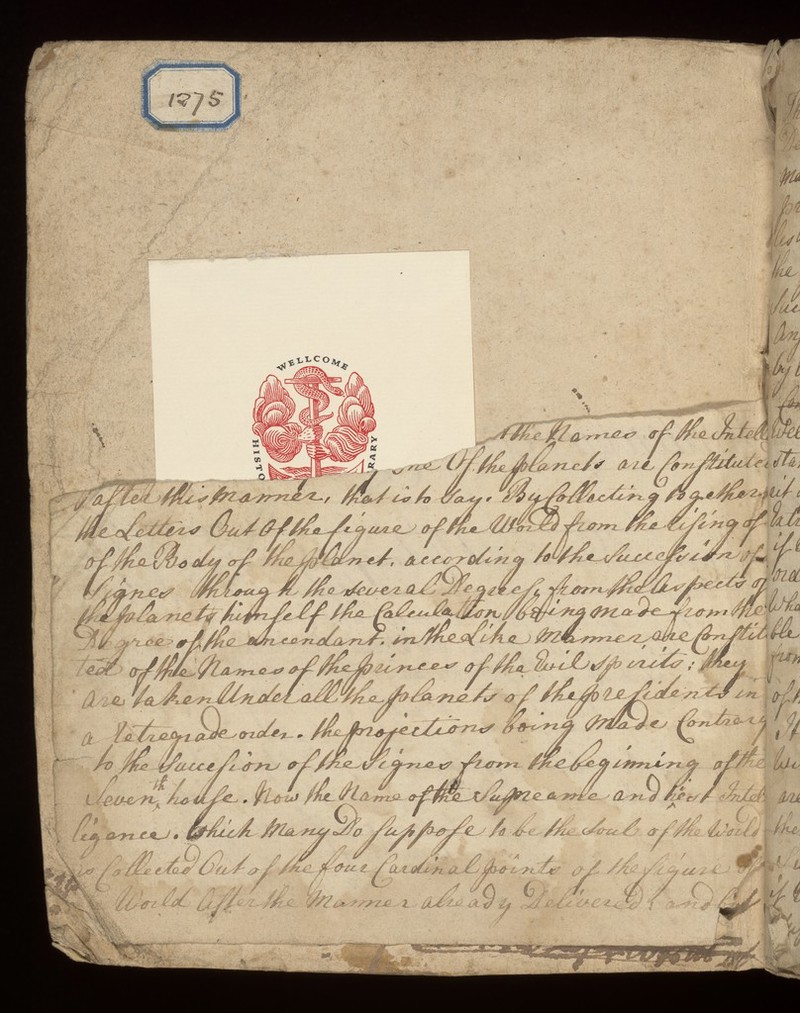 1275
WELLCOME
HISTO
RARY
the Names of the Intell
one Of the planets are Constitute
after this manner, that is to say. By Collecting together
the Letters Out Of the figure of the World from the rising of
of the Body of the planet, according to the Succession of
Signes through the several Degrees, from the Aspects of
the planets himself the Calculation being made from the
Degree of the ancendant. in the Like manner are Constit
ted of the Names of the princes of the Evil spirits: they
are taken Under all the planets of the presidents in
a retregrade order. the projections being made Contrary
to the Succesion of the Signes from the beginning of the
Seventh house. Now the Name of the Supreame and Intel
ligence. Which Many Do suppose to be the Soul of the World
is Collected Out of the four Cardinal points of the figure of
World After the Manner already Delivered: and